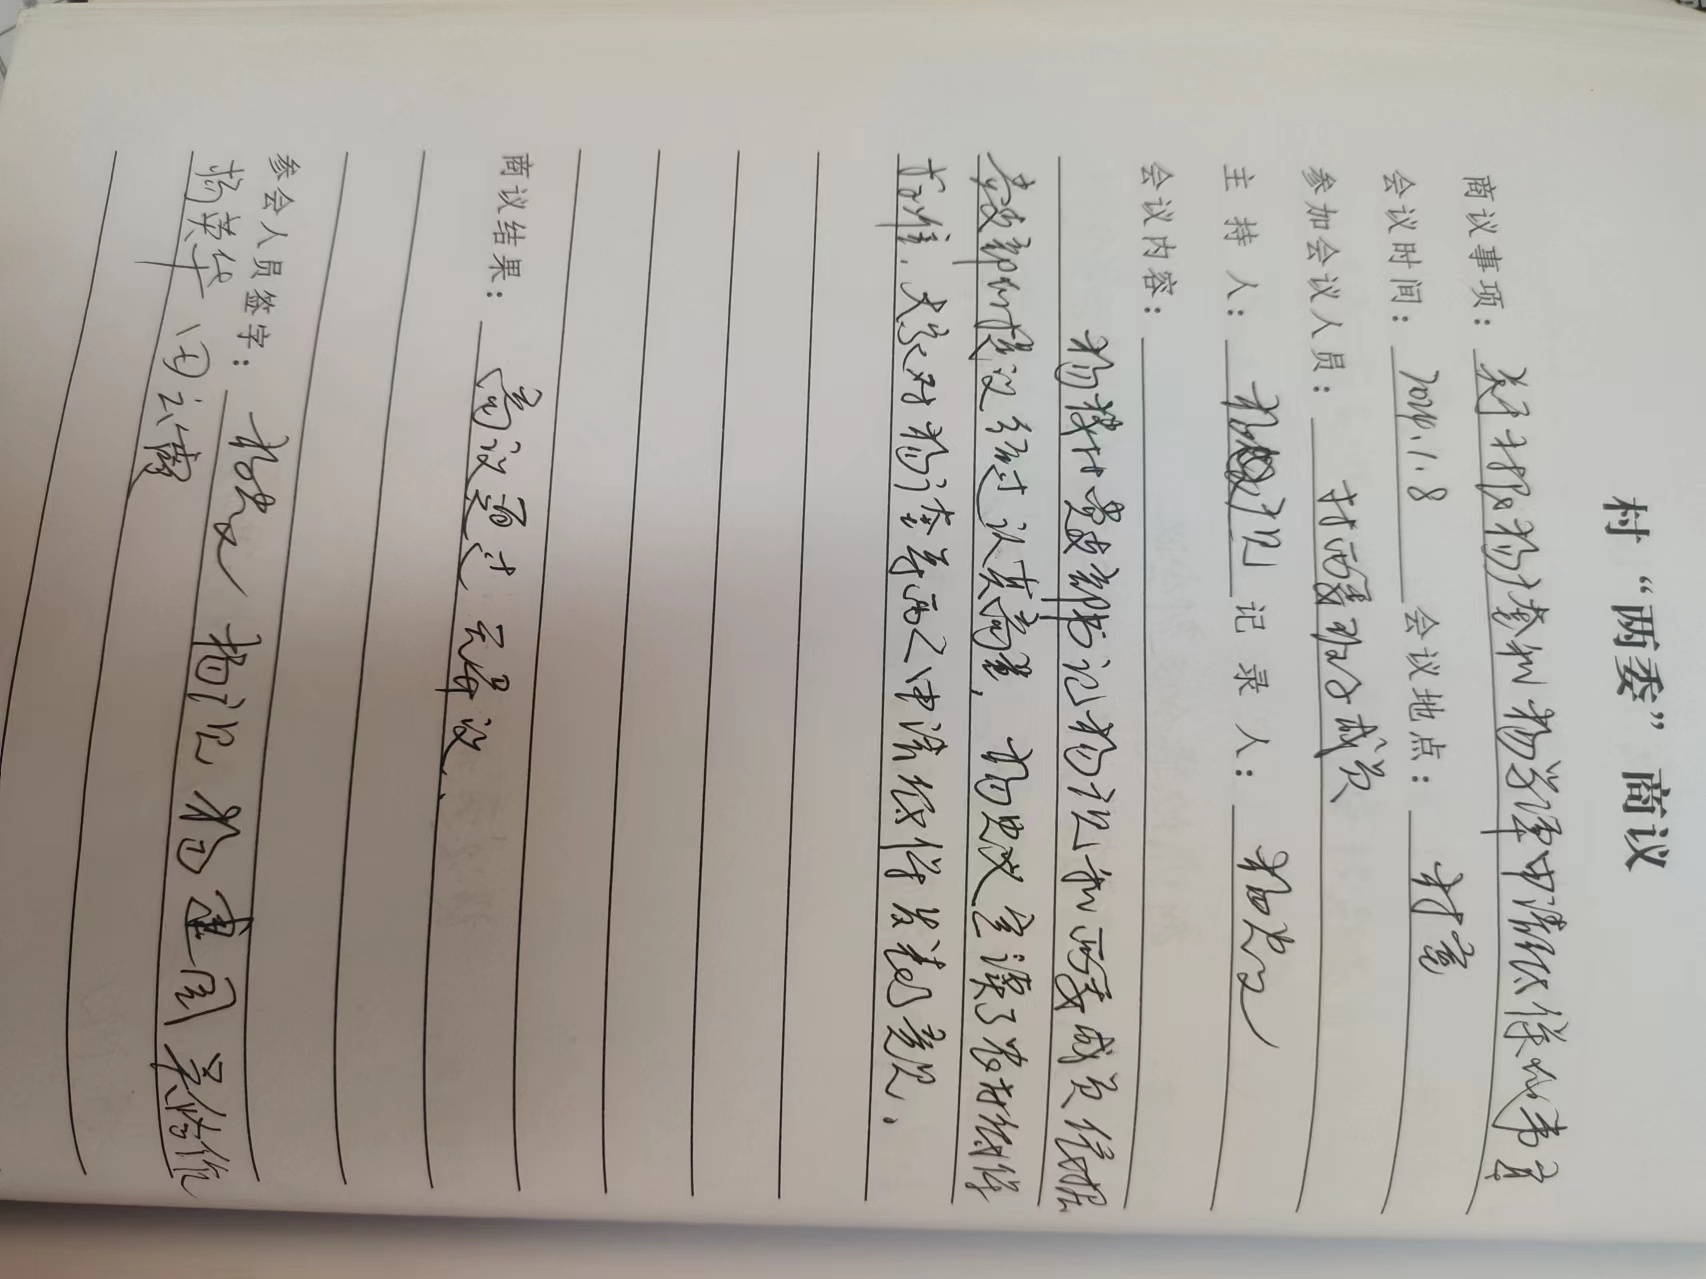 村“两委”商议
商议事项：关于村民杨广奎和杨学谭申请低保的事宜
会议时间：2024.1.8 会议地点：村室
参加会议人员：村两委班子成员
主持人：杨识 记录人：杨忠义
会议内容：
杨楼村党支部书记杨识和两委成员依据
党支部的提议经过认真商量，杨忠义宣读了农村低保
标准。大家对杨广奎等两人申请低保发表了意见。
商议结果：商议通过 无异议、
参会人员签字：杨忠义 杨识 杨建国 吴
杨英华 田云霞